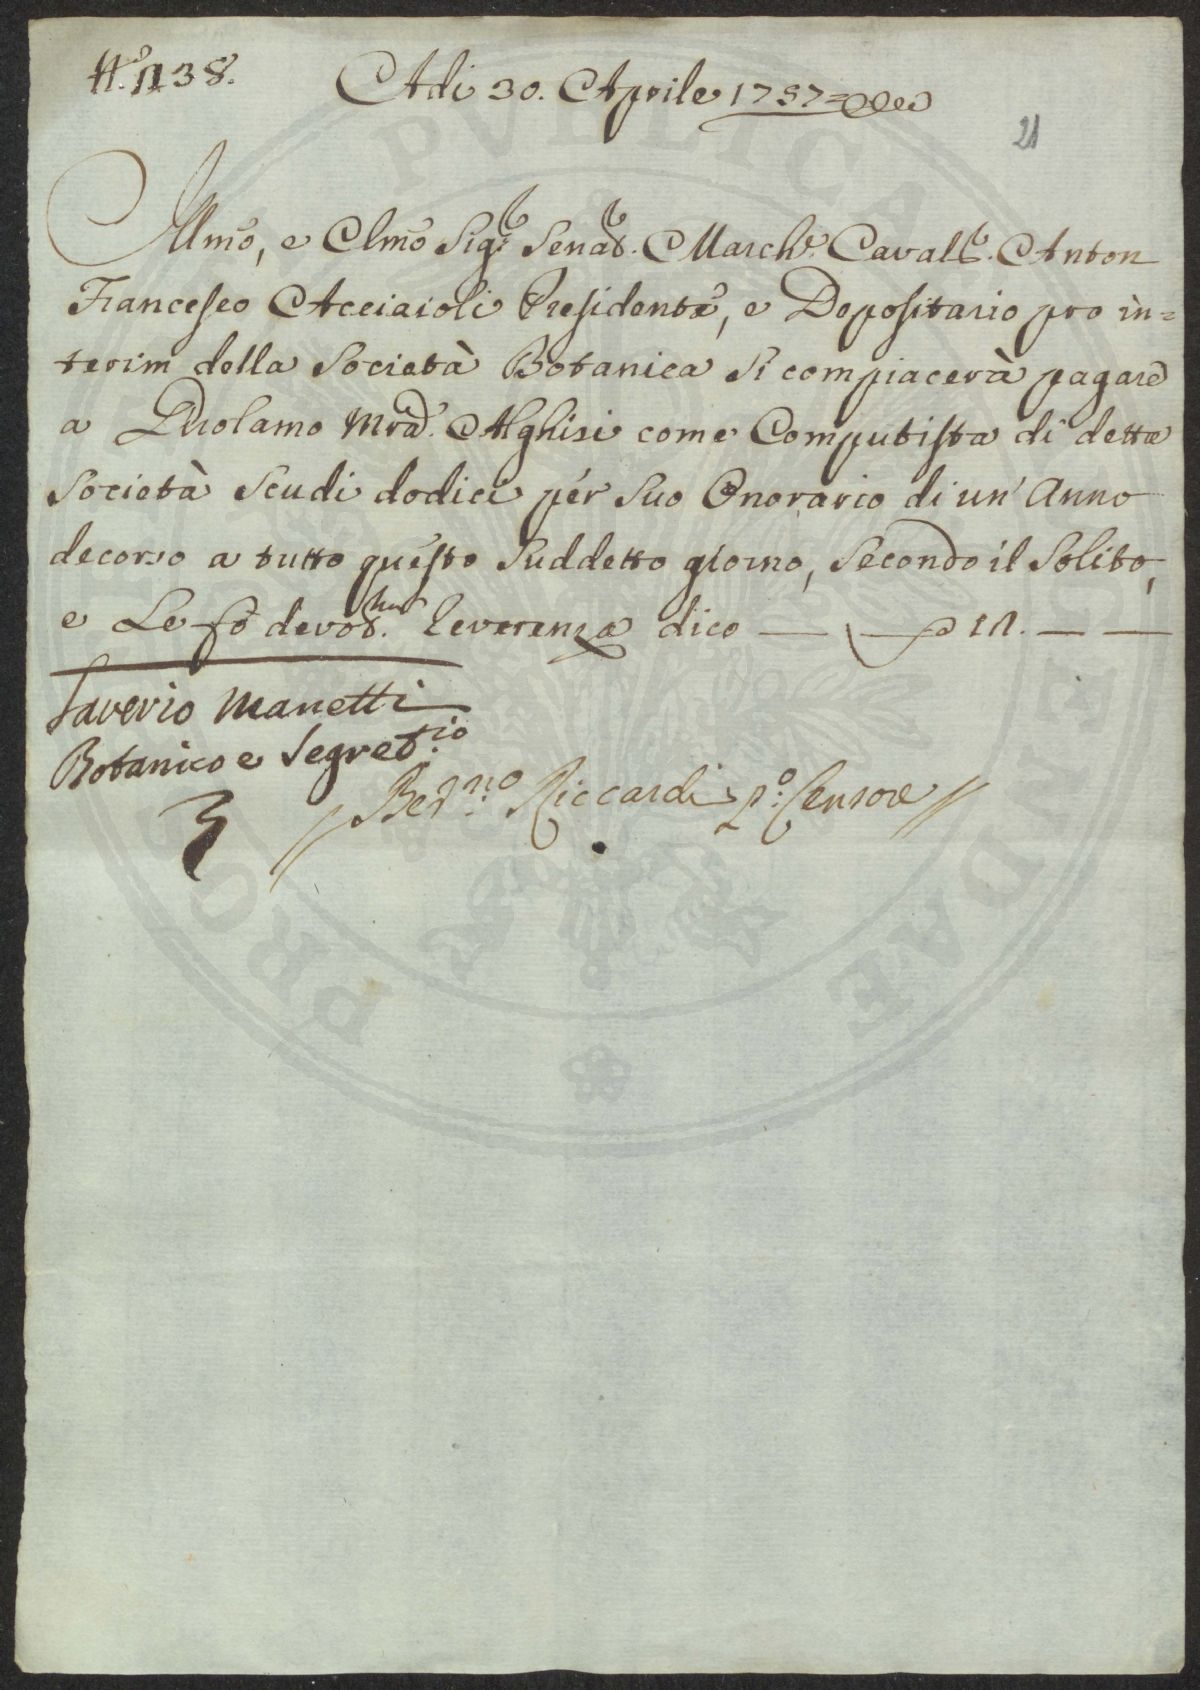 N.° 238.
Adi 30. Aprile 1757
21
Illmo, e Clmo Sigr. Senat. March.e Caval.r Anton
Francesco Acciaioli Presidente, e Depositario pro in=
terim della Società Botanica Si compiacerà pagare
a Girolamo Mra. Alghisi come Computista di detta
Società Scudi dodici per Suo Onorario di un' Anno
decorso a tutto questo Suddetto giorno, Secondo il Solito,
e Le fo devot.ma Reverenza dico — 12. — —
Saverio Manetti
Botanico e Segret.io
Bern.no Riccardi p.o Censore
PRO PVBLICAE